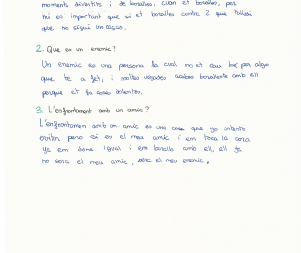 moments divertits i de baralles, quan et baralles, per
mi es important que si et baralles contra 2 que
que no sigui un asqus.
2. Que es un enemic?
Un enemic es una persona la cual no et cau be, per algo
que te a fet, i moltes vegades acabas barallante amb ell
perque et fa coses dolentes.
3. L'enfrontament amb un amic?
L'enfrontamen amb un amic es una cosa que jo intento
evitar pero si es el meu amic i em toca la cara
ja em dona igual i em barallo amb ell, ell ja
no sera el meu amic, sera el meu enemic.